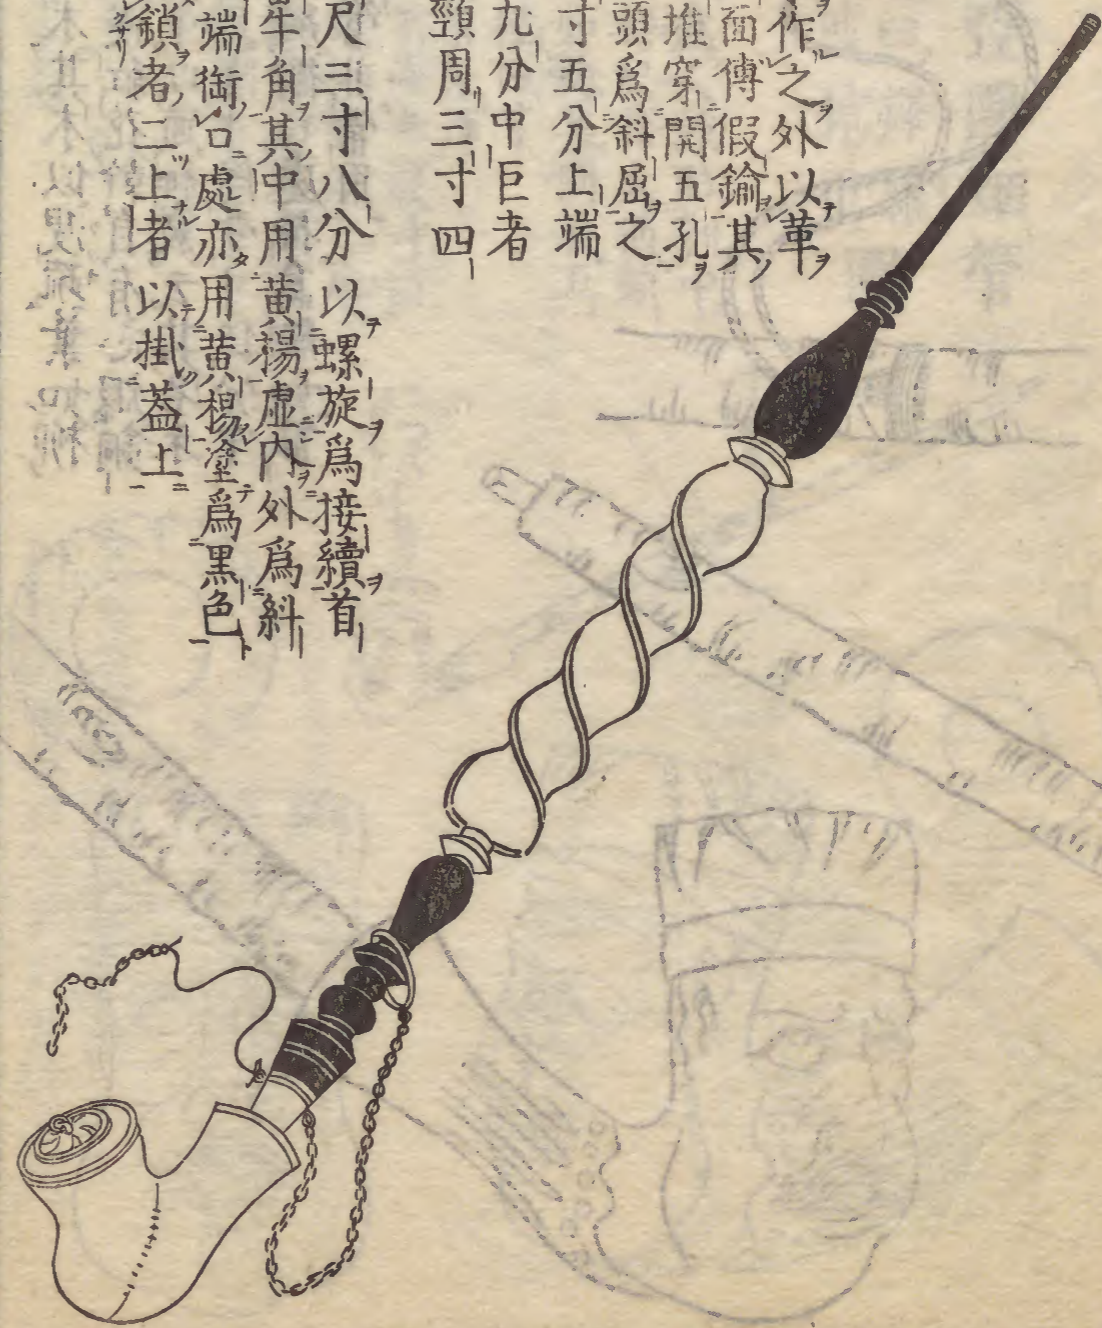 作之外以革
面傳假鍮其
堆穿開五孔
頭爲斜屈之
寸五分上端
九分中巨者
頸周三寸四
尺三寸八分以螺旋爲接續首
牛角其中用黄楊虚内外爲斜
端銜口處亦用黄楊塗爲黒色
鎖者二上者以掛蓋上